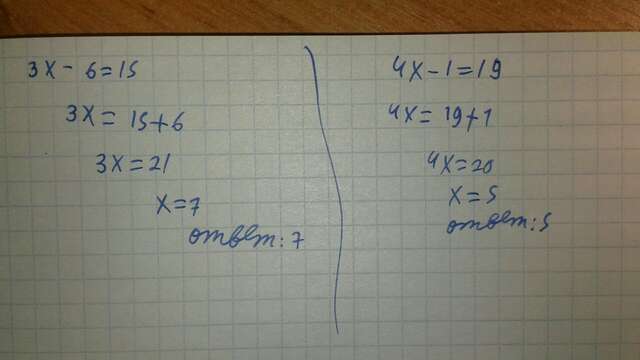 3x - 6 = 15
3x = 15 + 6
3x = 21
x = 7
ответ: 7
4x - 1 = 19
4x = 19 + 1
4x = 20
x = 5
ответ: 5